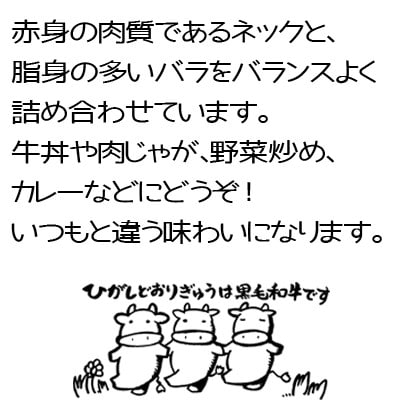 赤身の肉質であるネックと、
脂身の多いバラをバランスよく
詰め合わせています。
牛丼や肉じゃが、野菜炒め、
カレーなどにどうぞ！
いつもと違う味わいになります。
ひがしどおりぎゅうは黒毛和牛です